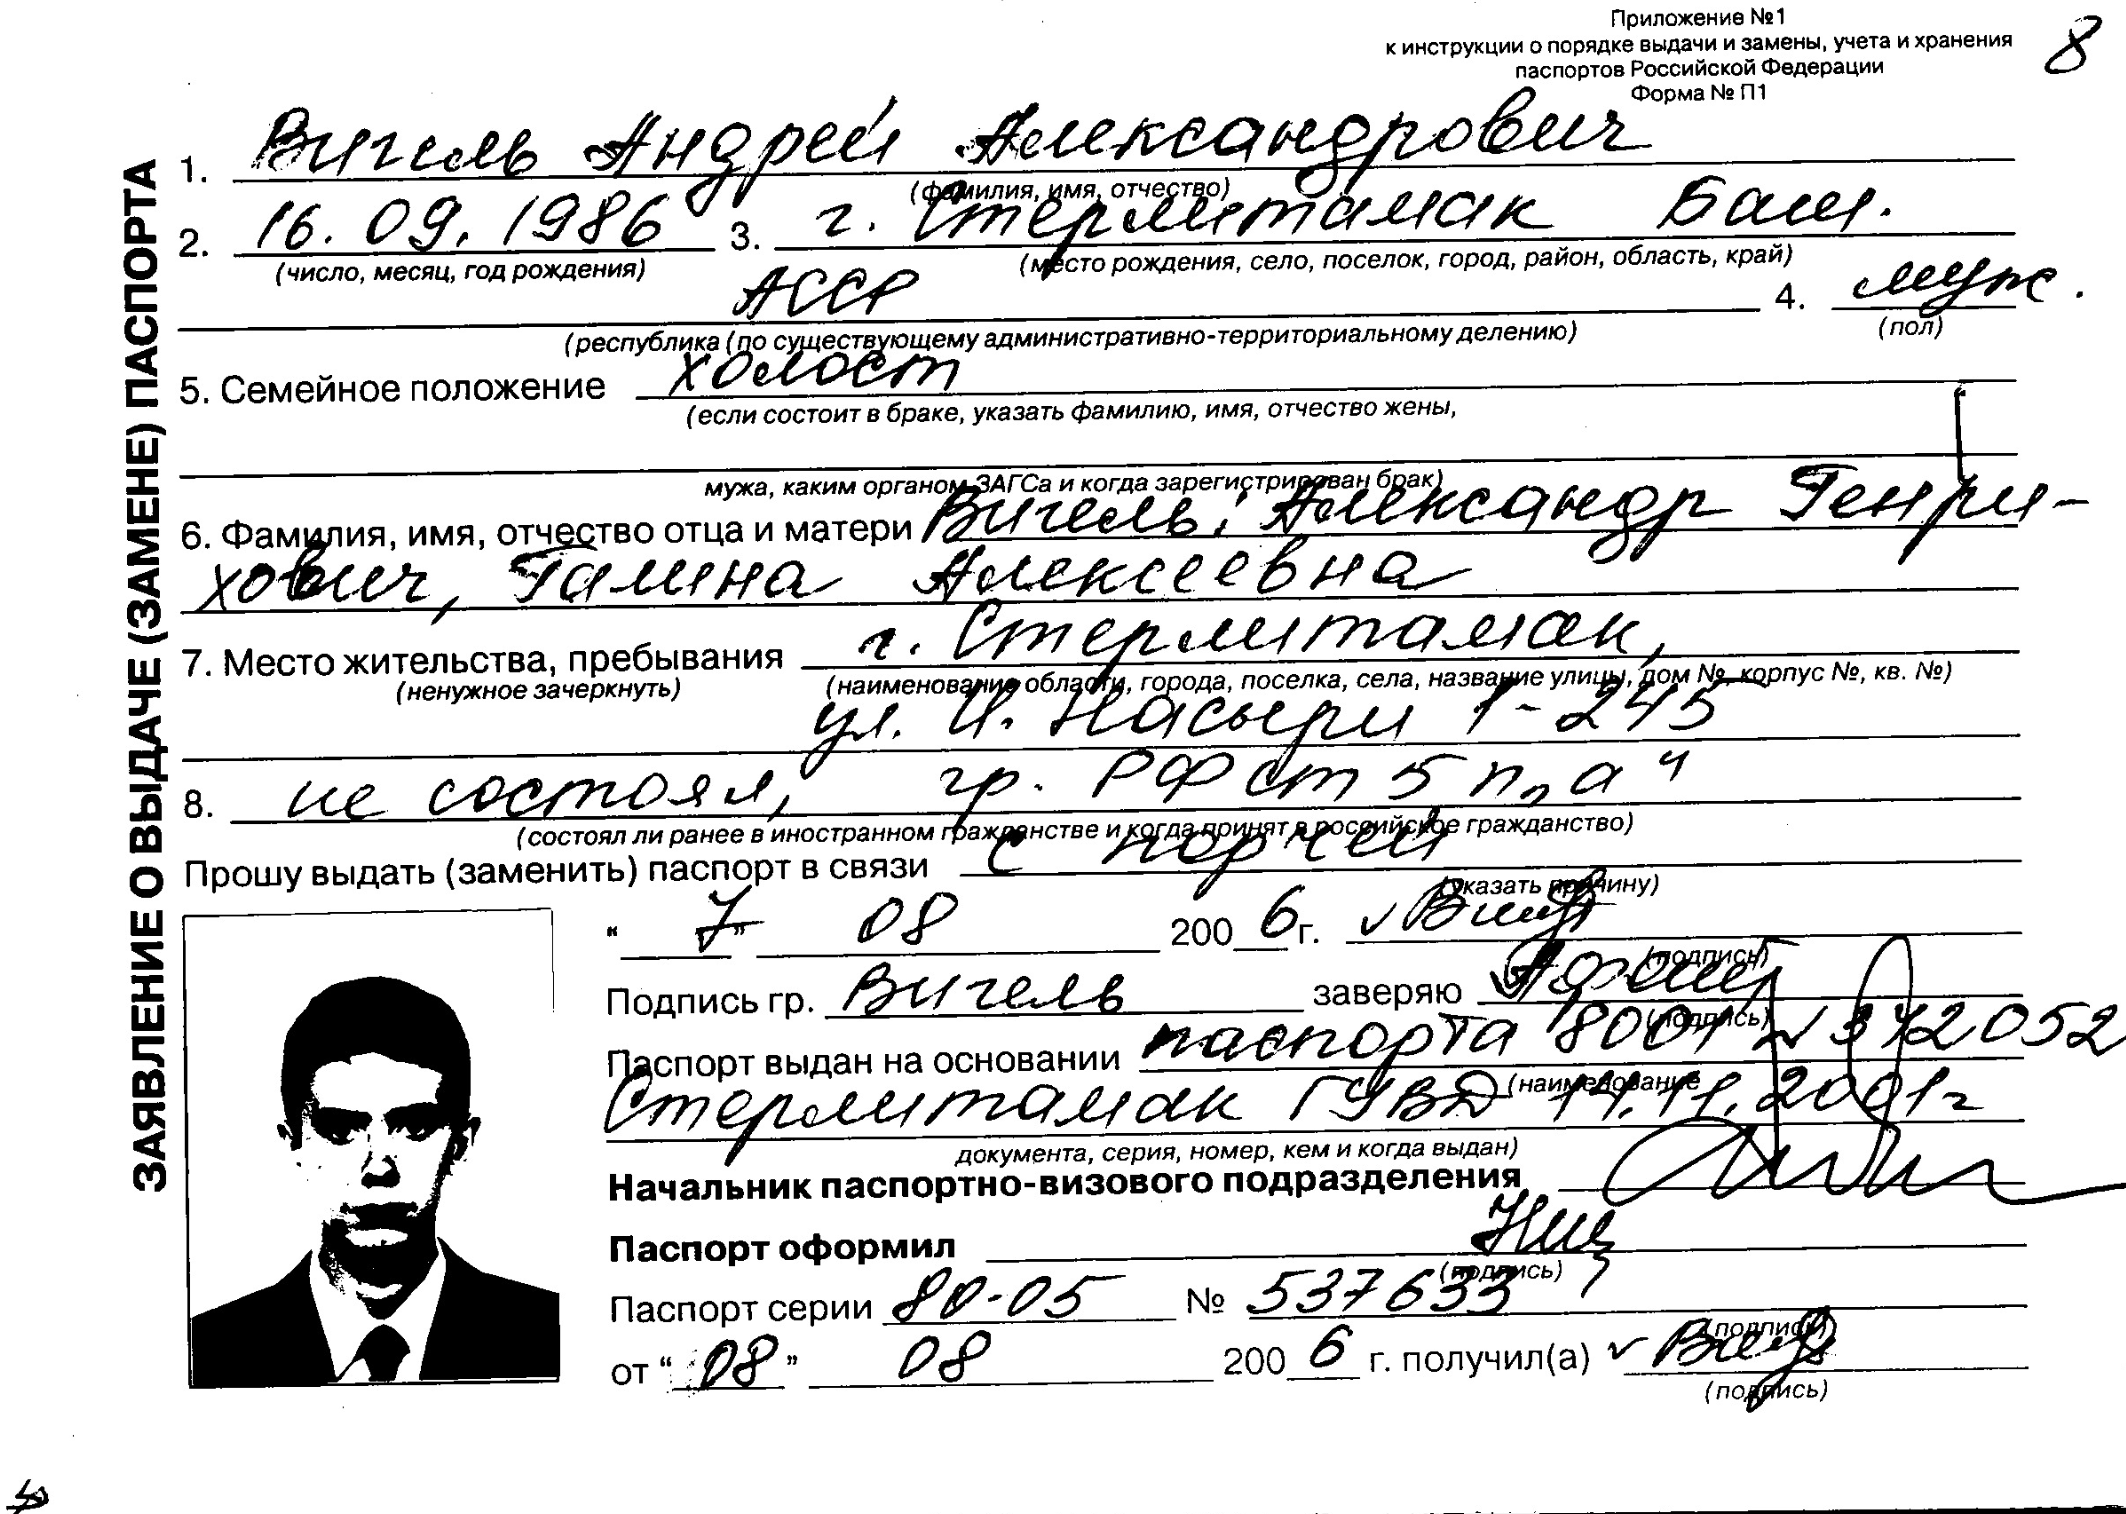 Приложение №1
к инструкции о порядке выдачи и замены, учета и хранения
паспортов Российской Федерации
Форма № П1
8
ЗАЯВЛЕНИЕ О ВЫДАЧЕ (ЗАМЕНЕ) ПАСПОРТА
1. Вигель Андрей Александрович
(фамилия, имя, отчество)
2. 16.09.1986 3. г. Стерлитамак Баш.
(число, месяц, год рождения) (место рождения, село, поселок, город, район, область, край)
АССР 4. муж.
(республика (по существующему административно-территориальному делению) (пол)
5. Семейное положение холост
(если состоит в браке, указать фамилию, имя, отчество жены,
мужа, каким органом ЗАГСа и когда зарегистрирован брак)
6. Фамилия, имя, отчество отца и матери Вигель: Александр Генри-
хович, Галина Алексеевна
7. Место жительства, пребывания г. Стерлитамак,
(ненужное зачеркнуть) (наименование области, города, поселка, села, название улицы, дом №, корпус №, кв. №)
ул. И. Насыри 1-245
8. не состоял, гр. РФ ст 5 п „а"
(состоял ли ранее в иностранном гражданстве и когда принят в российское гражданство)
Прошу выдать (заменить) паспорт в связи с порчей
(указать причину)
“ 7 ” 08 200 6 г.
(подпись)
Подпись гр. Вигель заверяю
(подпись)
Паспорт выдан на основании паспорта 8001 № 342052
(наименование
Стерлитамак ГУВД 14.11.2001г
документа, серия, номер, кем и когда выдан)
Начальник паспортно-визового подразделения
Паспорт оформил
(подпись)
Паспорт серии 80-05 № 537633
(подпись)
от “ 08 ” 08 200 6 г. получил(а)
(подпись)